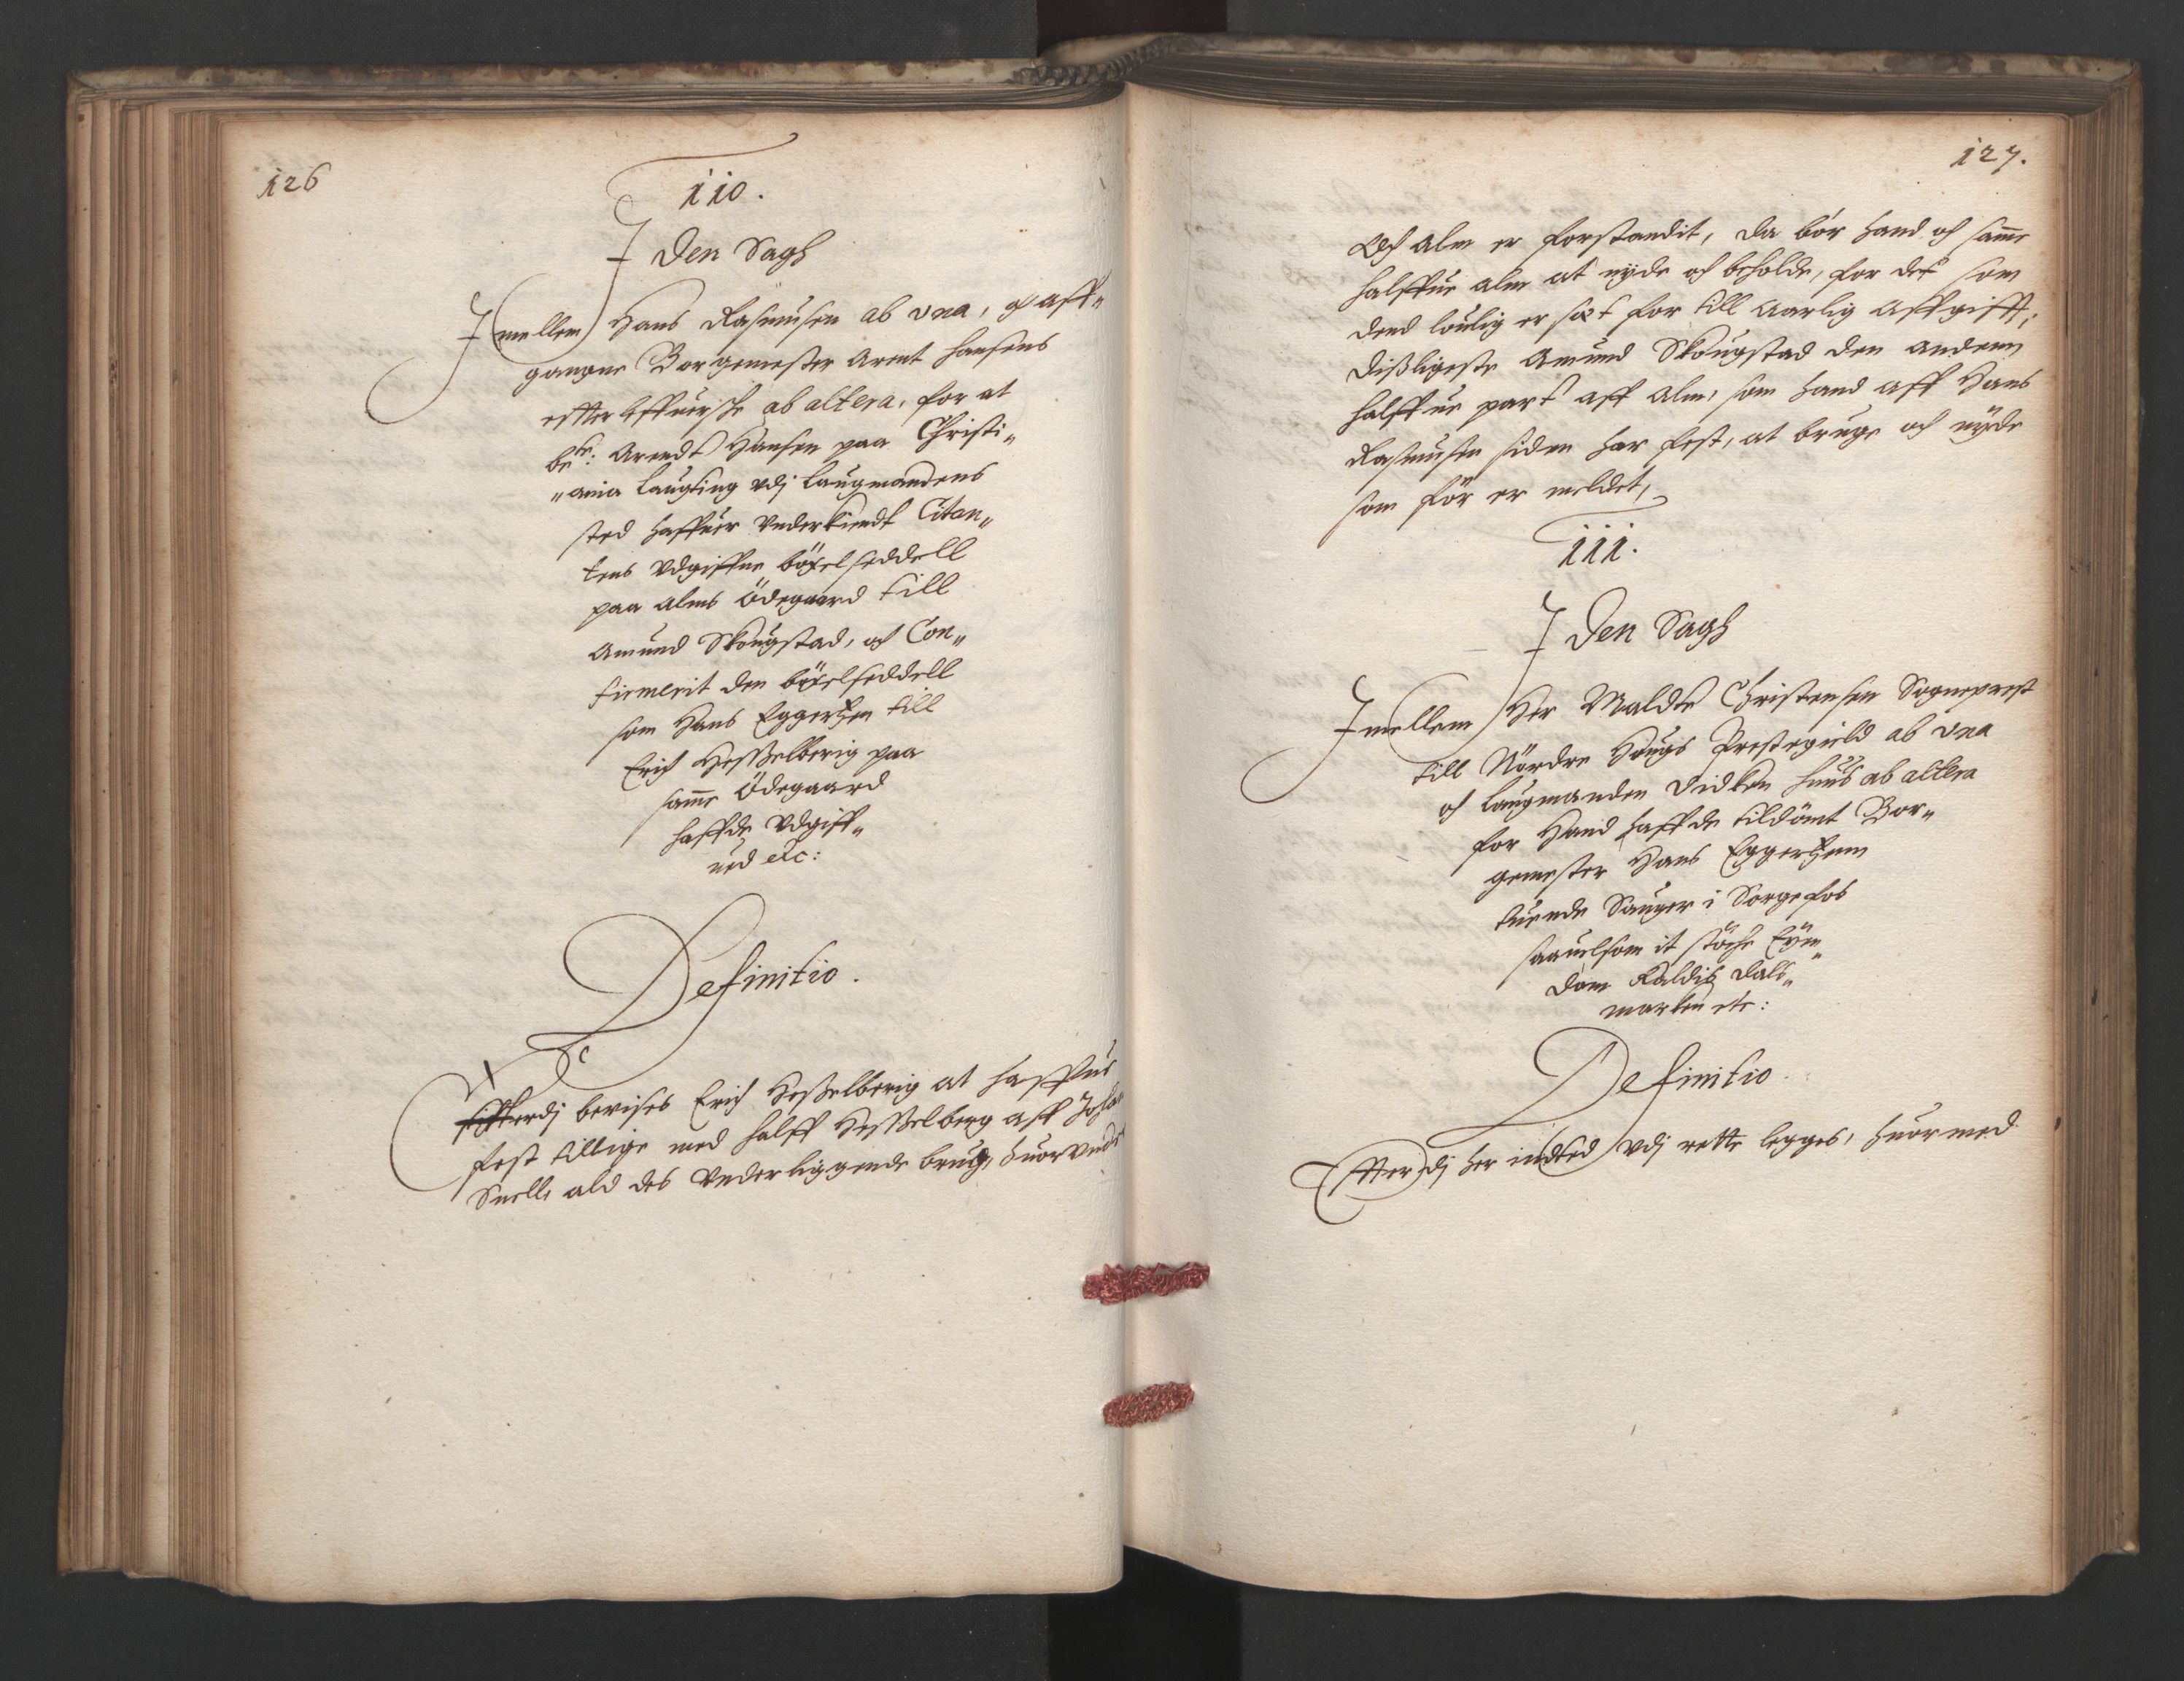 126
110.
I Den Sagh
Imellem Hans Rasmusen ab una, og aff„
gangne Borgemester Arent Hansens
effterleffuersche ab altera, for at
be:te: Arendt Hansen paa Christi„
„ania Laugting udj Laugmandens
sted haffuer underkiendt Citan„
tens udgiffne böxelseddell
paa Alms Ödegaard till
Amund Skougstad, och Con„
firmerit den böxelseddell
som Hans Eggertzen till
Erich Hesselberig paa
samme Ödegaard
haffde udgiff„
ued etc:
Definitio.
Effterdj bevises Erich Hesselberig at haffue
fest tillige med halff Hesselberg aff Johan
Snelle ald des underliggende brug, huorunder
127.
Och Alm er forstandit, da bör hand och samme
halffue Alm at nyde och beholde, for det som
dend loulig er sæt for till Aarlig Affgifft,
disligeste Amund Skougstad den anden
halffue part aff Alm, som hand aff Hans
Rasmusen siden har fest, at bruge och nyde
som för er meldet,
111.
I Den Sagh
Imellem Her Maldts Christensen Sogneprest
till Nördre Hougs Prestegield ab una
och Laugmanden Didken Huus ab altera
for Hand haffde tildömt Bor„
gemester Hans Eggertzenn
tuende Sauger i Sorgefos
saauelsom it støche Eyen„
dom Kaldis Dals„
marken etc:
Definitio
Effterdj her indted udj rette legges, huormed